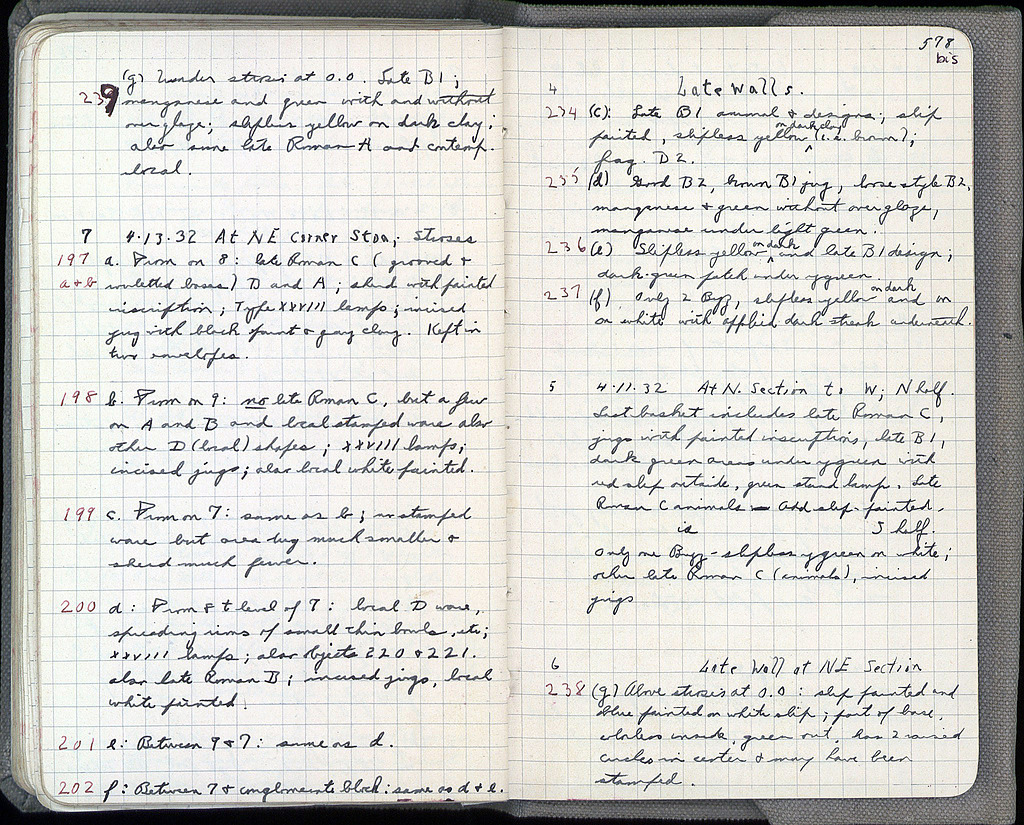 (g) Under strosis at 0.0. Late B1;
239 manganese and green with and without
overglaze; slipless yellow on dark clay;
also some late Roman A and contemp.
local.
7 4.13.32 At NE Corner Stoa; Stroses
197 a. From on 8: late Roman C (grooved +
a+b rouletted bases) D and A; sherd with painted
inscription; Type XXVIII lamps; incised
jug with black paint + gray clay. Kept in
two envelopes.
198 b. From on 9: no late Roman C, but a few
on A and B and local stamped ware also
other D (local) shapes; XXVIII lamps;
incised jugs; also local white painted.
199 c. From on 7: same as b; no stamped
ware but area dug much smaller +
sherd much fewer.
200 d: From 8 to level of 7: local D ware,
spreading rims of small thin bowls, etc;
XXVIII lamps; also objects 220 & 221.
also late Roman B; incised jugs, local
white painted.
201 e: Between 9 & 7: same as d.
202 f: Between 7 & conglomerate block: same as d & e.
578
bis
4 Late Walls.
234 (c): Late B1 animal & designs; slip
painted, slipless yellow on dark clay (i.e. brown);
frag. D2.
235 (d) Good B2, brown B1 jug, loose style B2,
manganese & green without overglaze,
manganese under light green.
236 (e) Slipless yellow on dark and late B1 design;
dark green patch under ygreen.
237 (f). Only 2 Byz, slipless yellow on dark and on
on white with applied dark streak underneath.
5 4.11.32 At N. Section to W; N half.
Last basket includes late Roman C,
jugs with painted inscriptions, late B1,
dark green areas under ygreen with
red slip outside, green stand lamp. Late
Roman C animals Odd slip-painted.
S half.
Only one Byz - slipless ygreen on white;
other late Roman C (animals), incised
jugs
6 Late Wall at NE Section
238 (g) Above strosis at 0.0: slip painted and
blue painted on white slip; part of base,
colorless inside, green out, has 2 raised
circles in center & may have been
stamped.